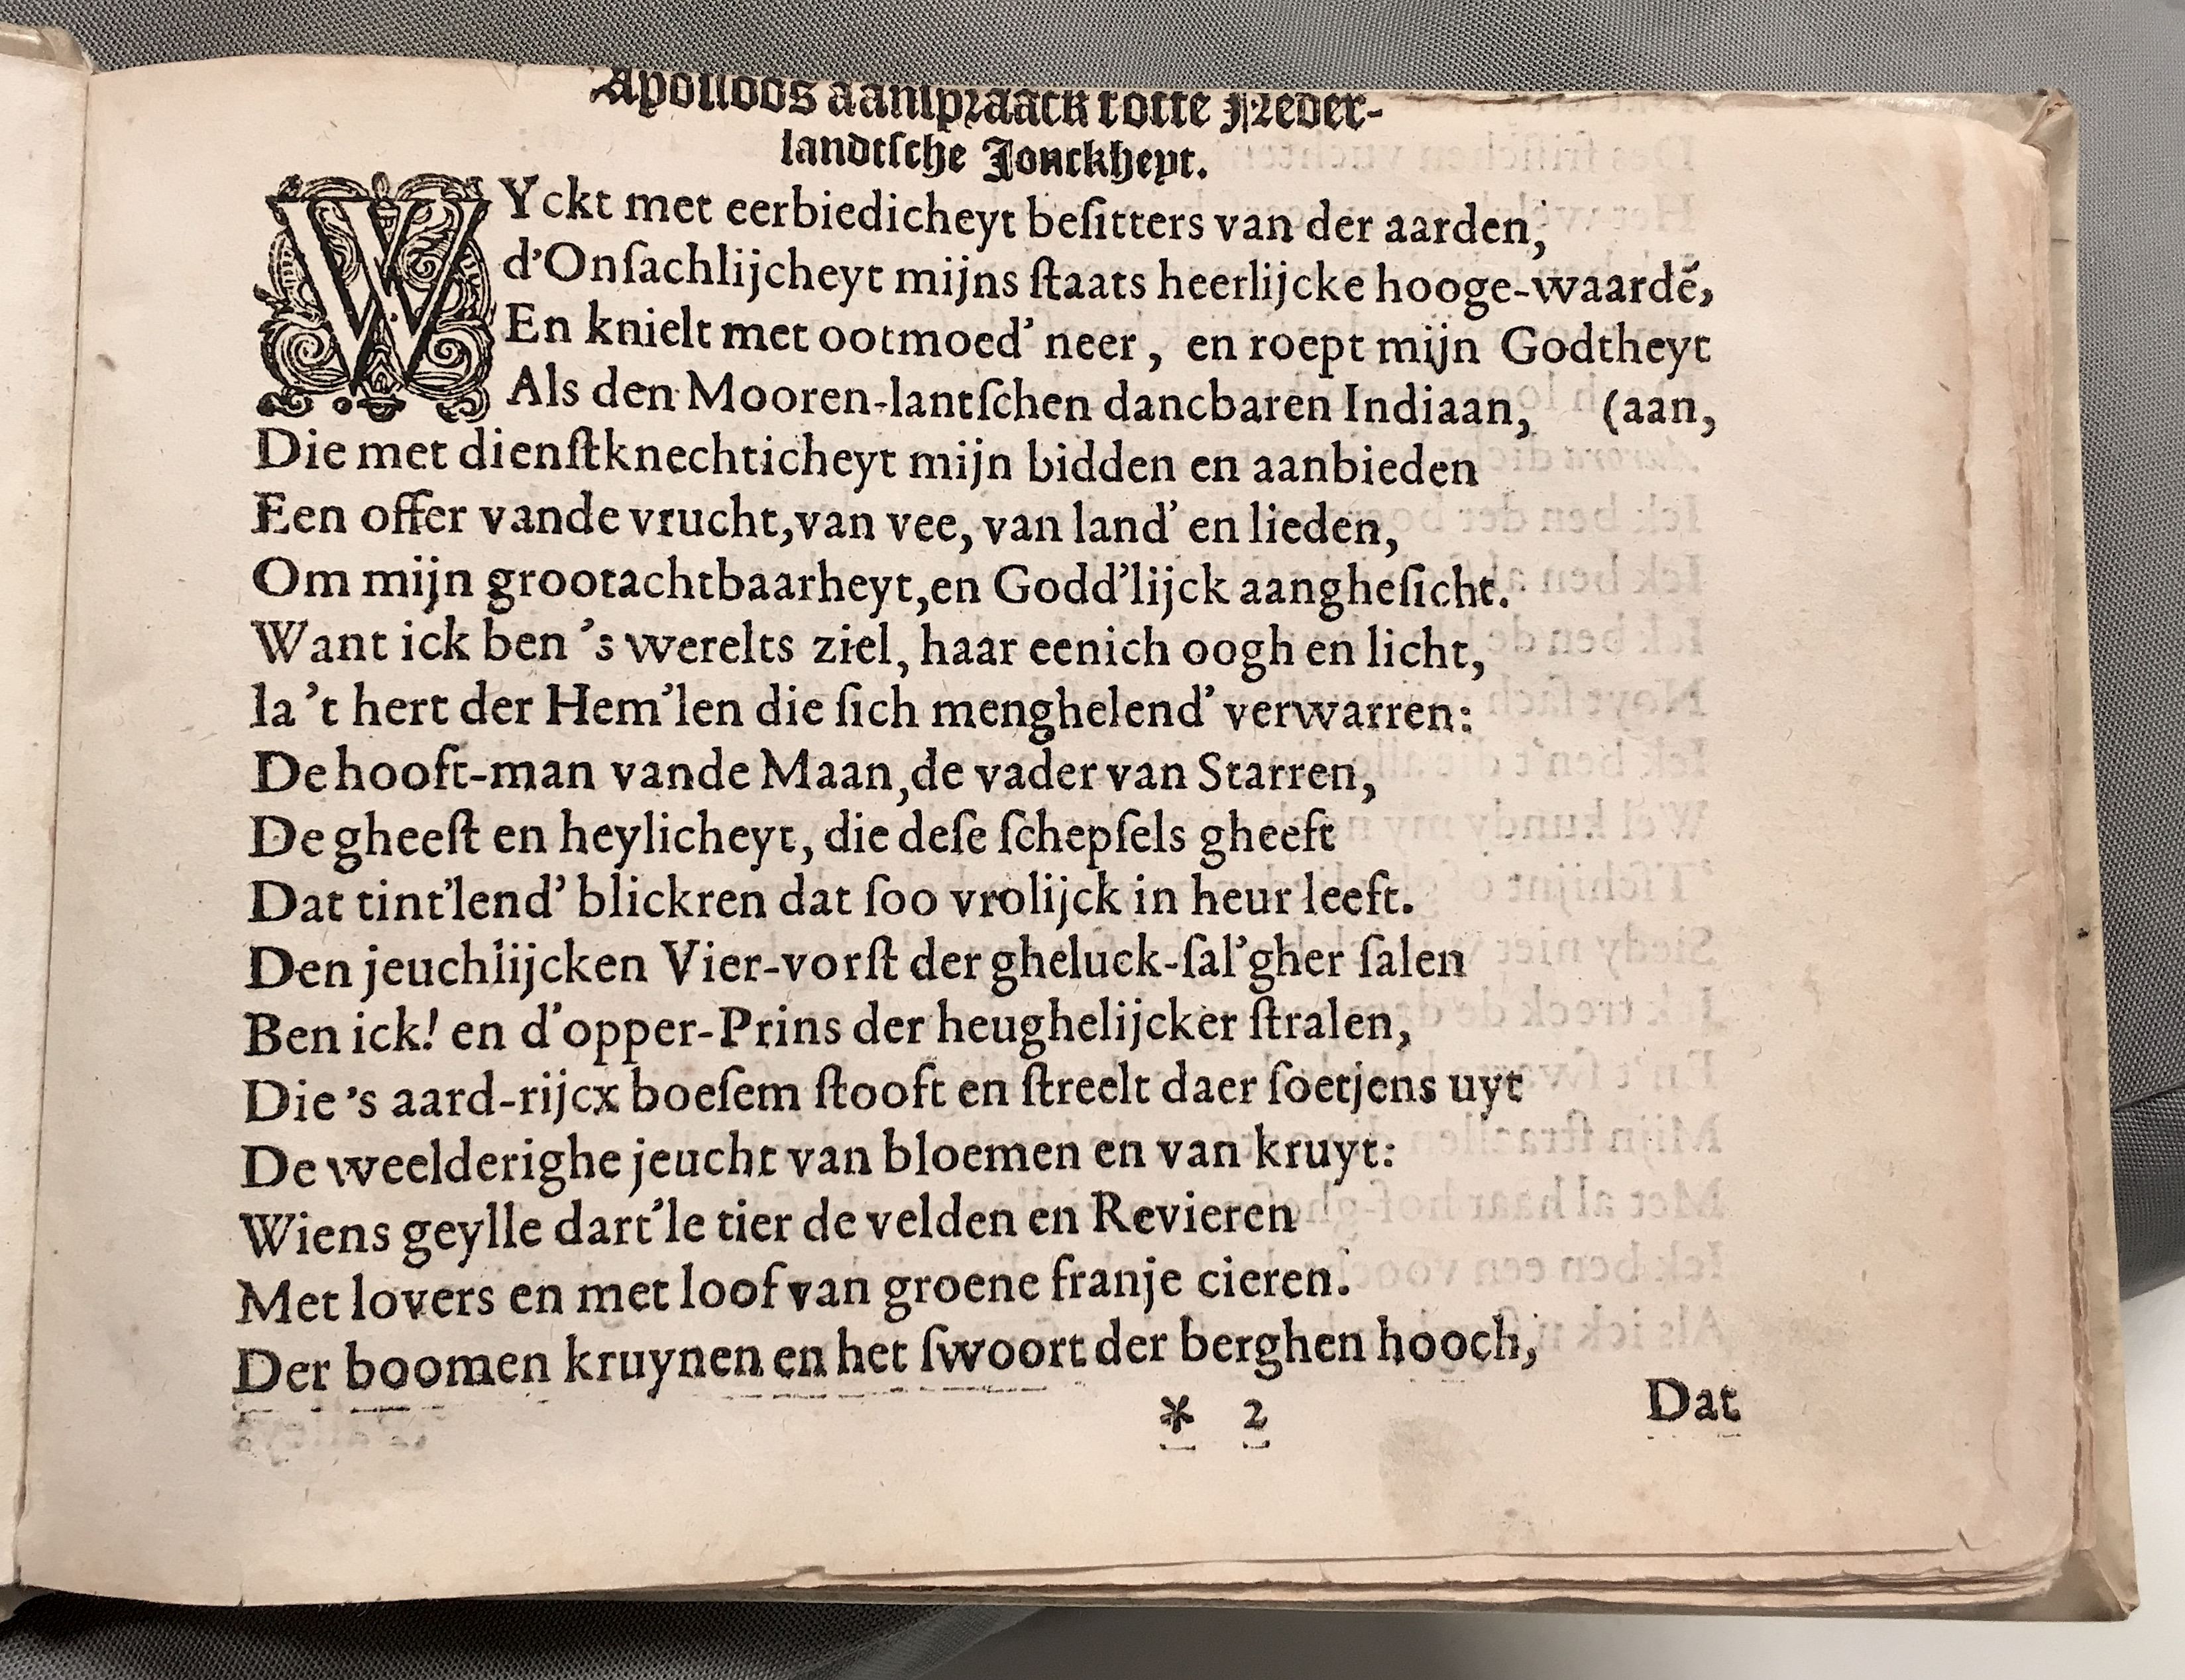 Apolloos aanſpraack totte Neder-
landtſche Jonckheyt.
WYckt met eerbiedicheyt beſitters van der aarden,
d'Onſachlijcheyt mijns ſtaats heerlijcke hooge-waardē,
En knielt met ootmoed' neer, en roept mijn Godtheyt
Als den Mooren-lantſchen dancbaren Indiaan, (aan,
Die met dienſtknechticheyt mijn bidden en aanbieden
Een offer vande vrucht, van vee, van land' en lieden,
Om mijn grootachtbaarheyt, en Godd'lijck aangheſicht.
Want ick ben 's werelts ziel, haar eenich oogh en licht,
Ia 't hert der Hem'len die ſich menghelend' verwarren:
De hooft-man vande Maan, de vader van Starren,
De gheeſt en heylicheyt, die deſe ſchepſels gheeft
Dat tint'lend' blickren dat ſoo vrolijck in heur leeft.
Den jeuchlijcken Vier-vorſt der gheluck-ſal'gher ſalen
Ben ick! en d'opper-Prins der heughelijcker ſtralen,
Die 's aard-rijcx boeſem ſtooft en ſtreelt daer ſoetjens uyt
De weelderighe jeucht van bloemen en van kruyt:
Wiens geylle dart'le tier de velden en Revieren
Met lovers en met loof van groene franje cieren.
Der boomen kruynen en het ſwoort der berghen hooch,
* 2
Dat